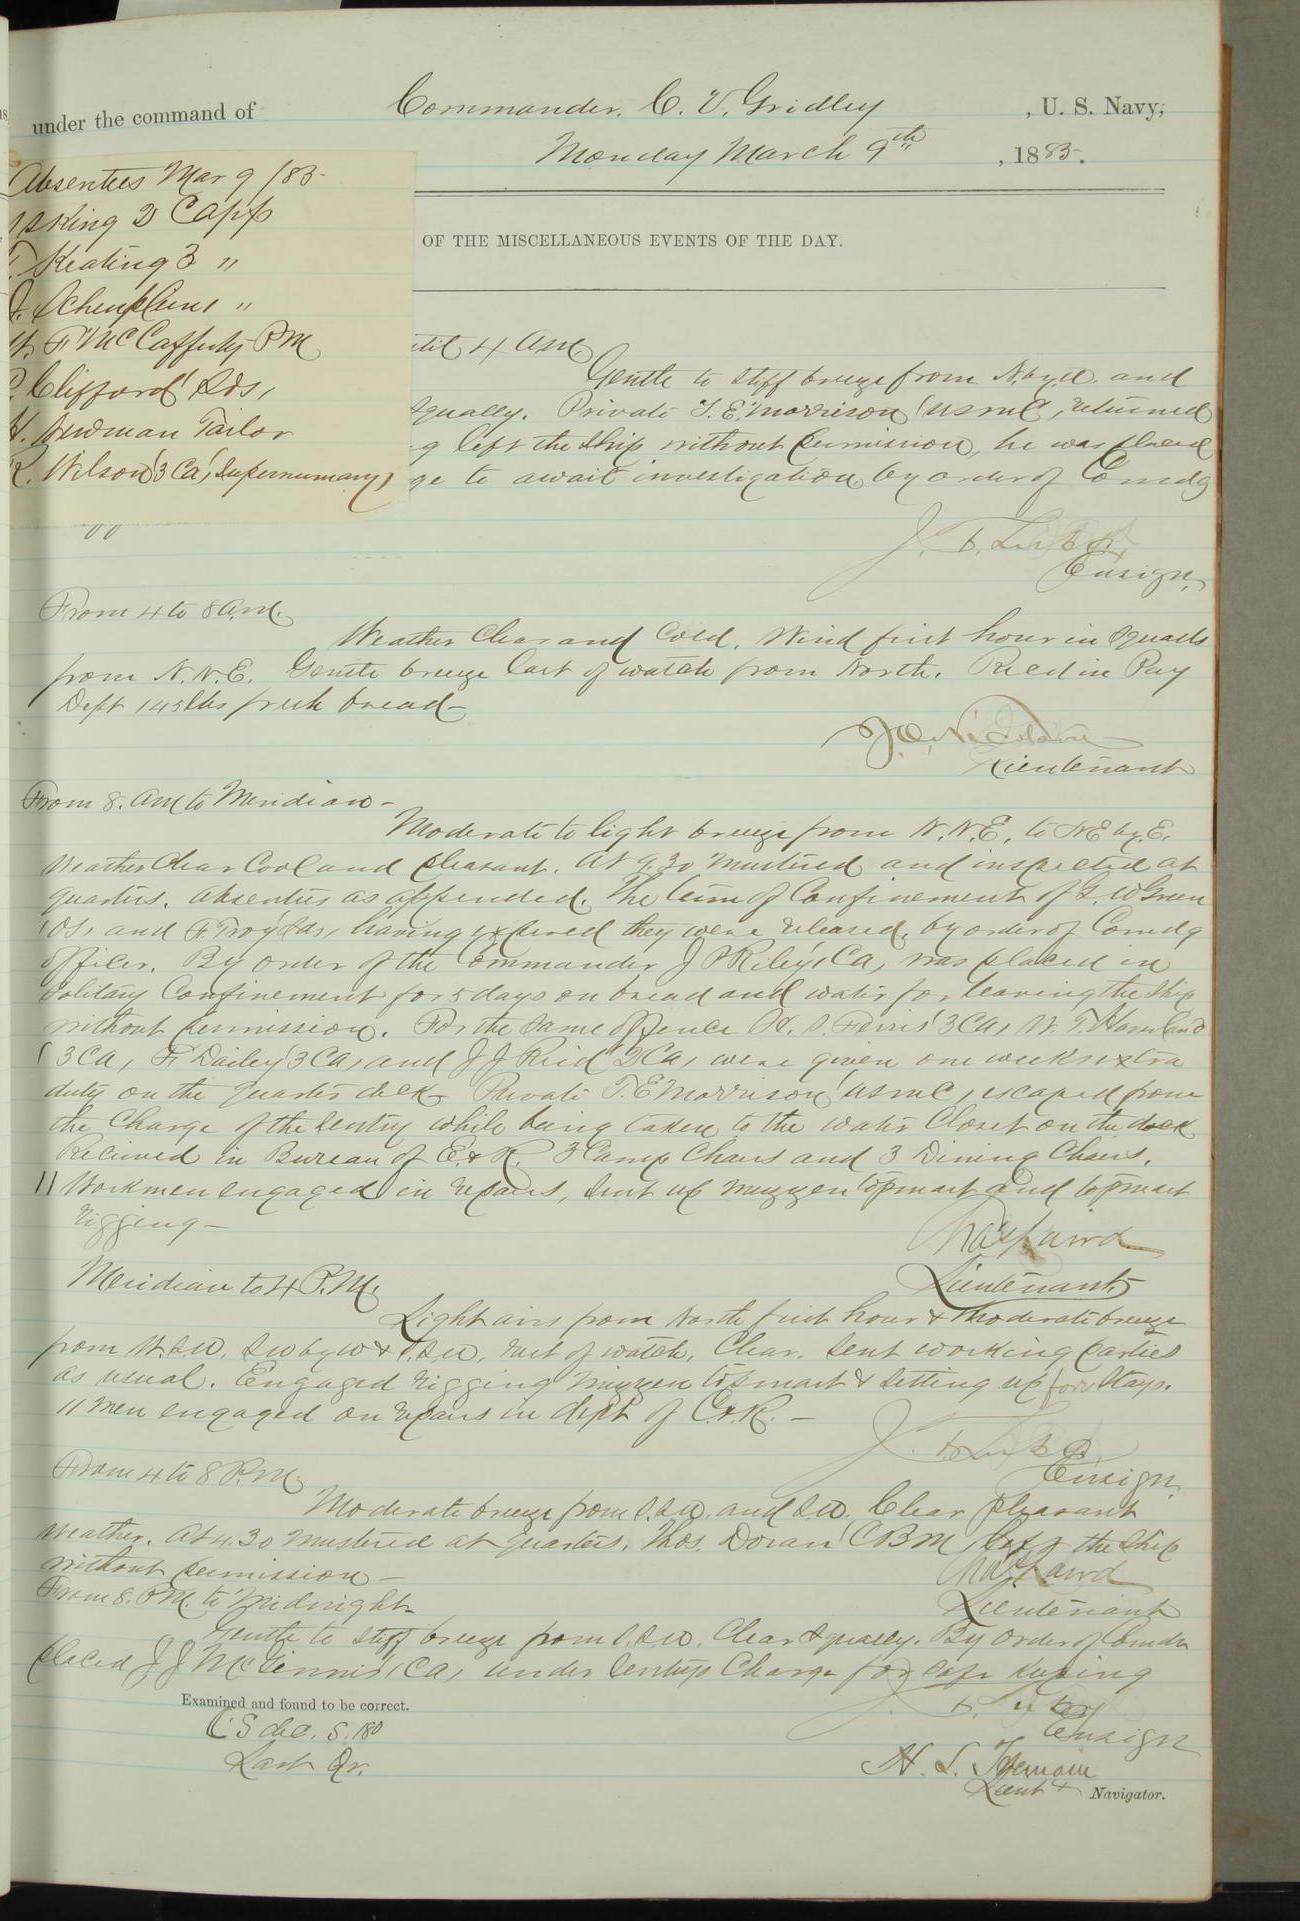 under the command of Commander. C. V. Gridley , U. S. Navy,
Monday March 9th , 1885.
Absentees Mar 9 /85
King 2 Capfo
Keating 3 "
"
F McCafferty PM
Clifford Lds,
H. Newman Tailor
R. Wilson 3 Ca, Supernumary,
OF THE MISCELLANEOUS EVENTS OF THE DAY.
4 AM
Gentle to stiff breeze from N.byE. and
squally. Private T. E. Morrison (USMC, returned
left the ship without permission, he was placed
ge to await investigation by order of Comdg
Ensign.
From 4 to 8 A.M.
Weather Clear and Cold. Wind first hour in squalls
from N.N.E. Gentle breeze last of watch from North. Recd in Pay
Dept 145 lbs fresh bread—
Lieutenant
From 8. AM to Meridian—
Moderate to light breeze from N.N.E. to NE by.E.
Weather Clear Cool and pleasant. At 9.30 mustered and inspected at
quarters. Absentees as appended. The term of Confinement of G. W Green
(OS, and F. Troy Lds, having expired they were released, by order of Comdg
Officer. By order of the Commander J P Riley, Ca, was placed in
Solitary Confinement for 5 days on bread and water for leaving the ship
without permission. For the same offence 3 Ca, W. T.
(3 Ca, F Dailey 3 Ca, and J J Reid 2 Ca, were given one weeks extra
duty on the quarter deck— Private T. E Morrison (USMC, escaped from
the Charge of the Sentry while being taken to the water Closet on the dock
Recieved in Bureau of E. & R. 3 Camp Chairs and 3 Dining Chairs.
11 Workmen engaged in repairs, sent up mizzen topmast and topmast
rigging—
Lieutenant—
Meridian to 4 P.M.
Light airs from North first hour & moderate breeze
from W.S.W. SW by W & S.S.W. rest of watch, Clear. Sent working parties
as usual. Engaged rigging mizzen topmast & setting up forv stays.
11 men engaged on repairs in dept of C. & R. —
Ensign.
From 4 to 8 P.M.
Moderate breeze from S.S.W. and S.W. Clear pleasant
weather. At 4.30 mustered at quarters. Thos. Doran (CBM, left the ship
without permission—
Lieutenant
From 8. P.M. to Midnight—
Gentle to stiff breeze from S.S.W. Clear & squally. By order of Comdr
placed J J McGinnis, (Ca, under Sentrys Charge for safe keeping
Ensign
Examined and found to be correct.
Last Qr.
Lieut & Navigator.